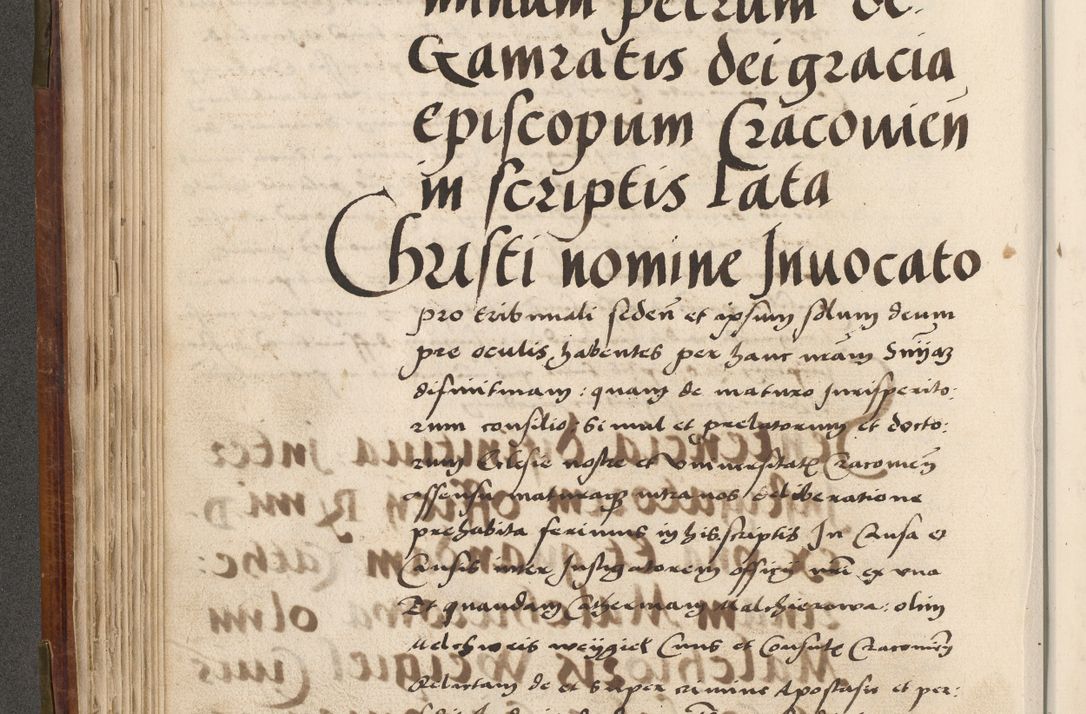 minum petrum de
Gamratis dei gracia
Episcopum Cracovień
in scriptis Lata
Christi nomine Invocato
pro tribunali sedeń et ipsum solum deum
pre oculis habentes per hanc nrām Snīam
difinitivam: quam de maturo Jurisperito:
rum consilio: Simul et prelatorum et docto:
rum Eclesie nostre et Universitatis Cracovień
assensu maturaque intra nos deliberatione
prehabita ferimus in his scriptis In Causa et
Causis inter Instigatorem officii nrī ex una
Et quandam Catherinam Malchierowa: olim
Melchioris weÿgiel Civis et Consulis Cracovień
Relictam de et Super crimine Apostasie et per: